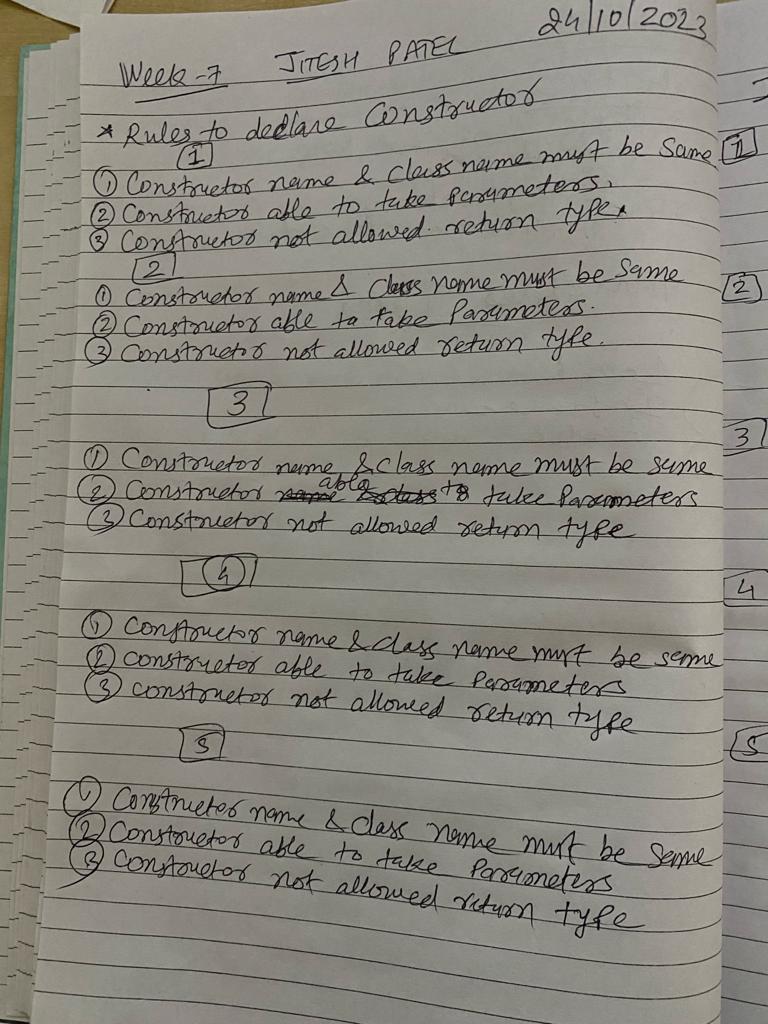 24/10/2023
Week-7 JITESH PATEL
* Rules to declare Constructor
1
① Constructor name & Class name must be same
② Constructor able to take parameters.
③ Constructor not allowed return type.
2
① Constructor name & Class name must be same
② Constructor able to take Parameters.
③ Constructor not allowed return type.
3
① Constructor name & class name must be same
② Constructor able to take Parameters
③ Constructor not allowed return type
4
① Constructor name & class name must be same
② Constructor able to take Parameters
③ Constructor not allowed return type
5
① Constructor name & class name must be same
② Constructor able to take Parameters
③ Constructor not allowed return type
1
2
3
4
5